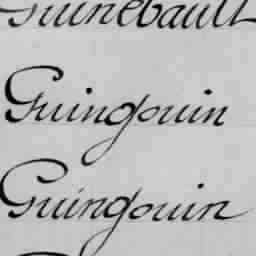 Guinebault
Guingouin
Guingouin